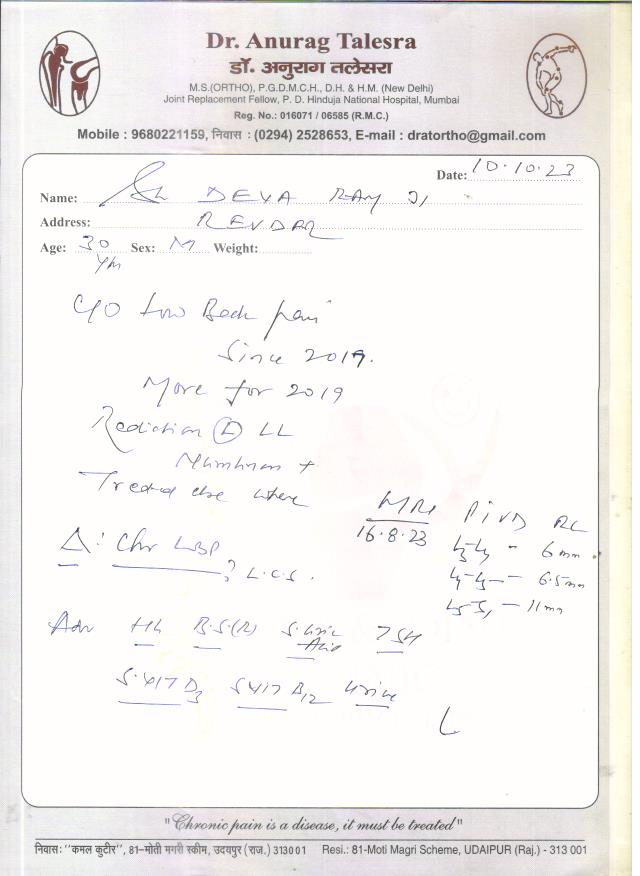 Dr. Anurag Talesra
डॉ. अनुराग तलेसरा
M.S.(ORTHO), P.G.D.M.C.H., D.H. & H.M. (New Delhi)
Joint Replacement Fellow, P. D. Hinduja National Hospital, Mumbai
Reg. No.: 016071 / 06585 (R.M.C.)
Mobile : 9680221159, निवास : (0294) 2528653, E-mail : dratortho@gmail.com
Date: 10.10.23
Name: Sh DEVA RAM JI
Address: REVDAR
Age: 30 yrs Sex: M Weight:
C/O Low Back pain
Since 2019.
More for 2019
Radiation (L) LL
Numbness +
Treated else where
MRI PIVD
16.8.23
L3-L4 - 6 mm
L4-L5 - 6.5 mm
L5-S1 - 11 mm
Δ: Chr LBP
? L.C.S.
Adv Hb B.S.(R) S. Uric Acid TSH
S. VIT D3 S VIT B12 Urine
"Chronic pain is a disease, it must be treated"
निवास: "कमल कुटीर", 81-मोती मगरी स्कीम, उदयपुर (राज.) 313001 Resi.: 81-Moti Magri Scheme, UDAIPUR (Raj.) - 313 001